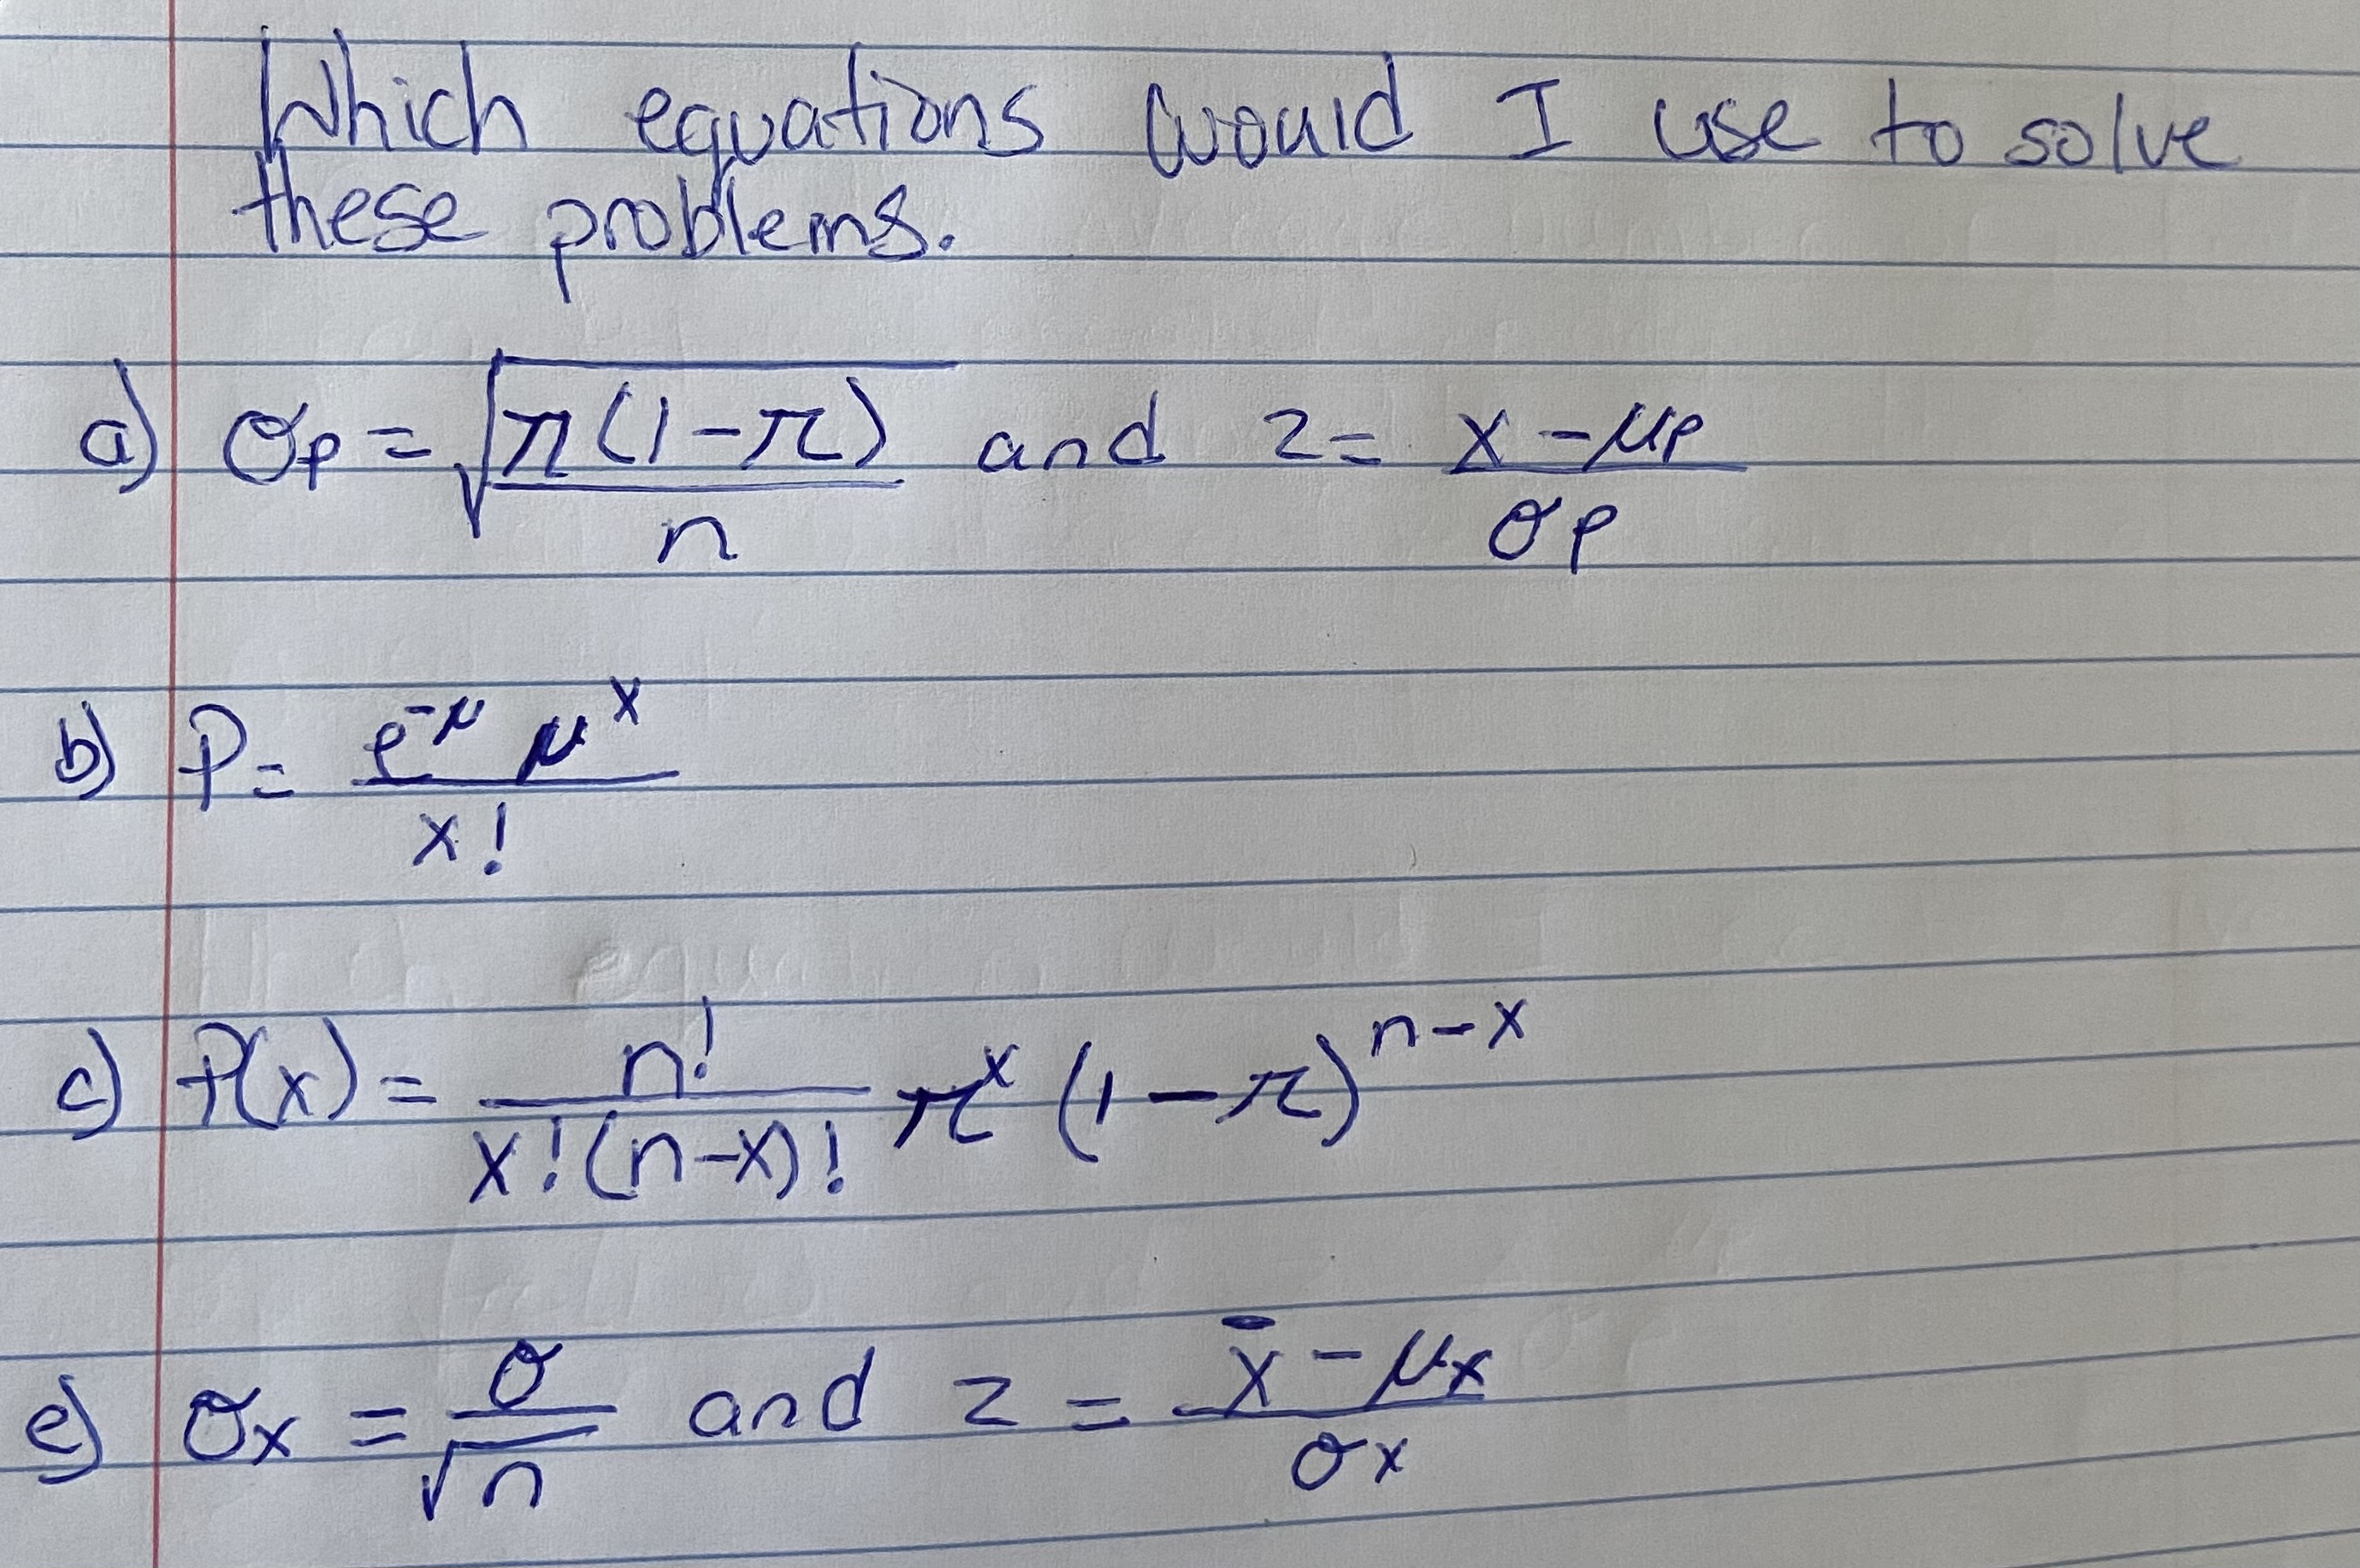 Which equations would I use to solve
these problems.
a) σp = √(π(1-π)/n) and z = (x - μp)/σp
b) P = (e^-μ μ^x)/x!
c) P(x) = n!/(x!(n-x)!) π^x (1-π)^n-x
e) σx = σ/√n and z = (x̄ - μx)/σx